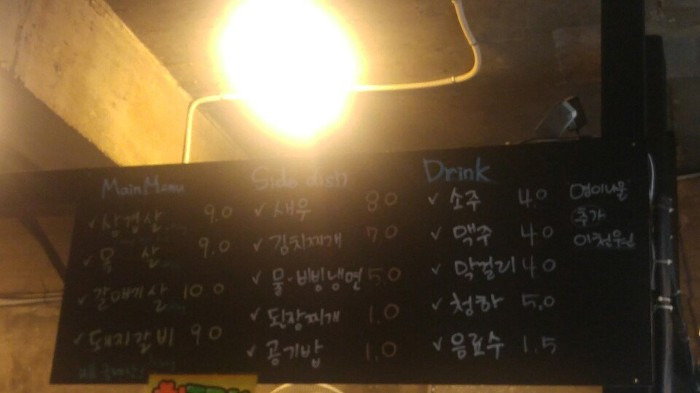 Main Menu
✓ 삼겹살 9.0
✓ 목 살 9.0
✓ 갈매기살 10.0
✓ 돼지갈비 9.0
Side dish
✓ 새우 8.0
✓ 김치찌개 7.0
✓ 물·비빙냉면 5.0
✓ 된장찌개 1.0
✓ 공기밥 1.0
Drink
✓ 소주 4.0
✓ 맥주 4.0
✓ 막걸리 4.0
✓ 청하 5.0
✓ 음료수 1.5
명이나물
추가
이천원